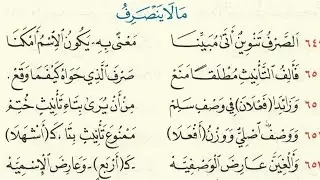 مَا لَا يَنْصَرِفُ
٦٤٩ الصَّرْفُ تَنْوِينٌ أَتَى مُبَيِّنَا مَعْنًى بِهِ - يَكُونُ الاِسْمُ أَمْكَنَا
٦٥٠ فَأَلِفُ التَّأْنِيثِ مُطْلَقًا مَنَعْ صَرْفَ الَّذِي حَوَاهُ كَيْفَمَا وَقَعْ
٦٥١ وَزَائِدَا (فَعْلَانَ) فِي وَصْفٍ سَلِمْ مِنْ أَنْ يُرَى بِتَاءِ تَأْنِيثٍ خُتِمْ
٦٥٢ وَوَصْفٌ اَصْلِيٌّ وَوَزْنُ (أَفْعَلَا) مَمْنُوعَ تَأْنِيثٍ بِتَا، كَـ(أَشْهَلَا)
٦٥٣ وَأَلْغِيَنَّ عَارِضَ الْوَصْفِيَّهْ كَـ(أَرْبَعٍ) - وَعَارِضَ الاِسْمِيَّهْ